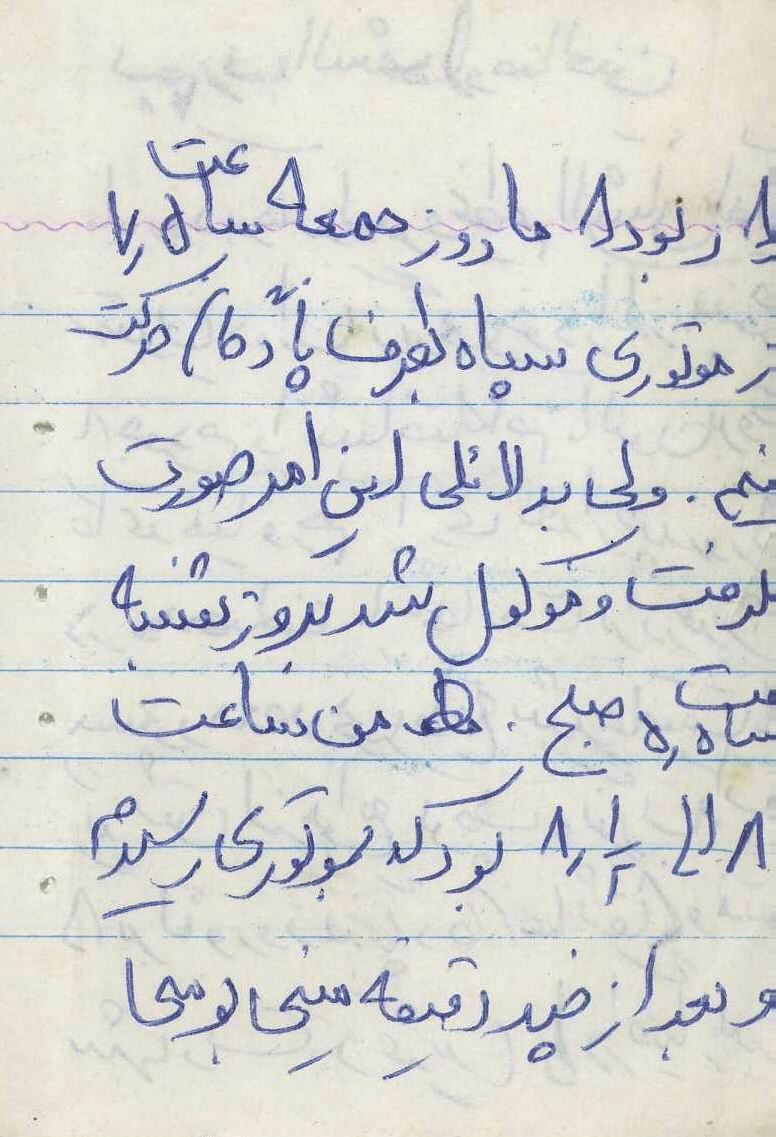 بود ما روز جمعه ساعت ۷
موتوری سپاه بطرف پادگان حرکت
کنیم. ولی بدلائلی این امر صورت
نگرفت و موکول شد بروز شنبه
ساعت ۸ صبح. من ساعت
۸ الی ۸٫۱/۲ بود که بموتوری رسیدم
و بعد از چند دقیقه مینی بوس